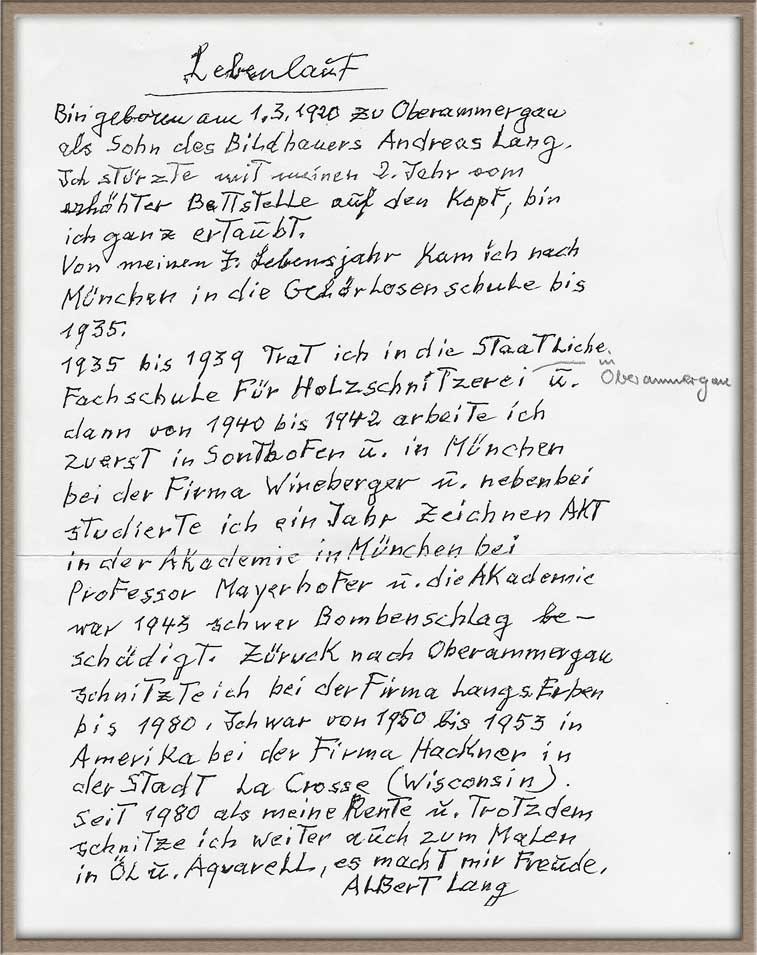 Lebenlauf
Bin geboren am 1.3.1920 zu Oberammergau
als Sohn des Bildhauers Andreas Lang.
Ich stürzte mit meinen 2. Jahr vom
erhöhter Bettstelle auf den Kopf, bin
ich ganz ertaubt.
Von meinen 7. Lebensjahr kam ich nach
München in die Gehörlosenschule bis
1935.
1935 bis 1939 trat ich in die Staatliche
Fachschule für Holzschnitzerei u. in Oberammergau
dann von 1940 bis 1942 arbeite ich
zuerst in Sonthofen u. in München
bei der Firma Wineberger u. nebenbei
studierte ich ein Jahr Zeichnen AKT
in der Akademie in München bei
Professor Mayerhofer u. die Akademie
war 1943 schwer Bombenschlag be-
schädigt. Züruck nach Oberammergau
schnitzte ich bei der Firma Langs. Erben
bis 1980. Ich war von 1950 bis 1953 in
Amerika bei der Firma Hackner in
der Stadt La Crosse (Wisconsin).
Seit 1980 als meine Rente u. Trotzdem
schnitze ich weiter auch zum Malen
in ÖL u. Aquarell, es macht mir Freude.
Albert Lang